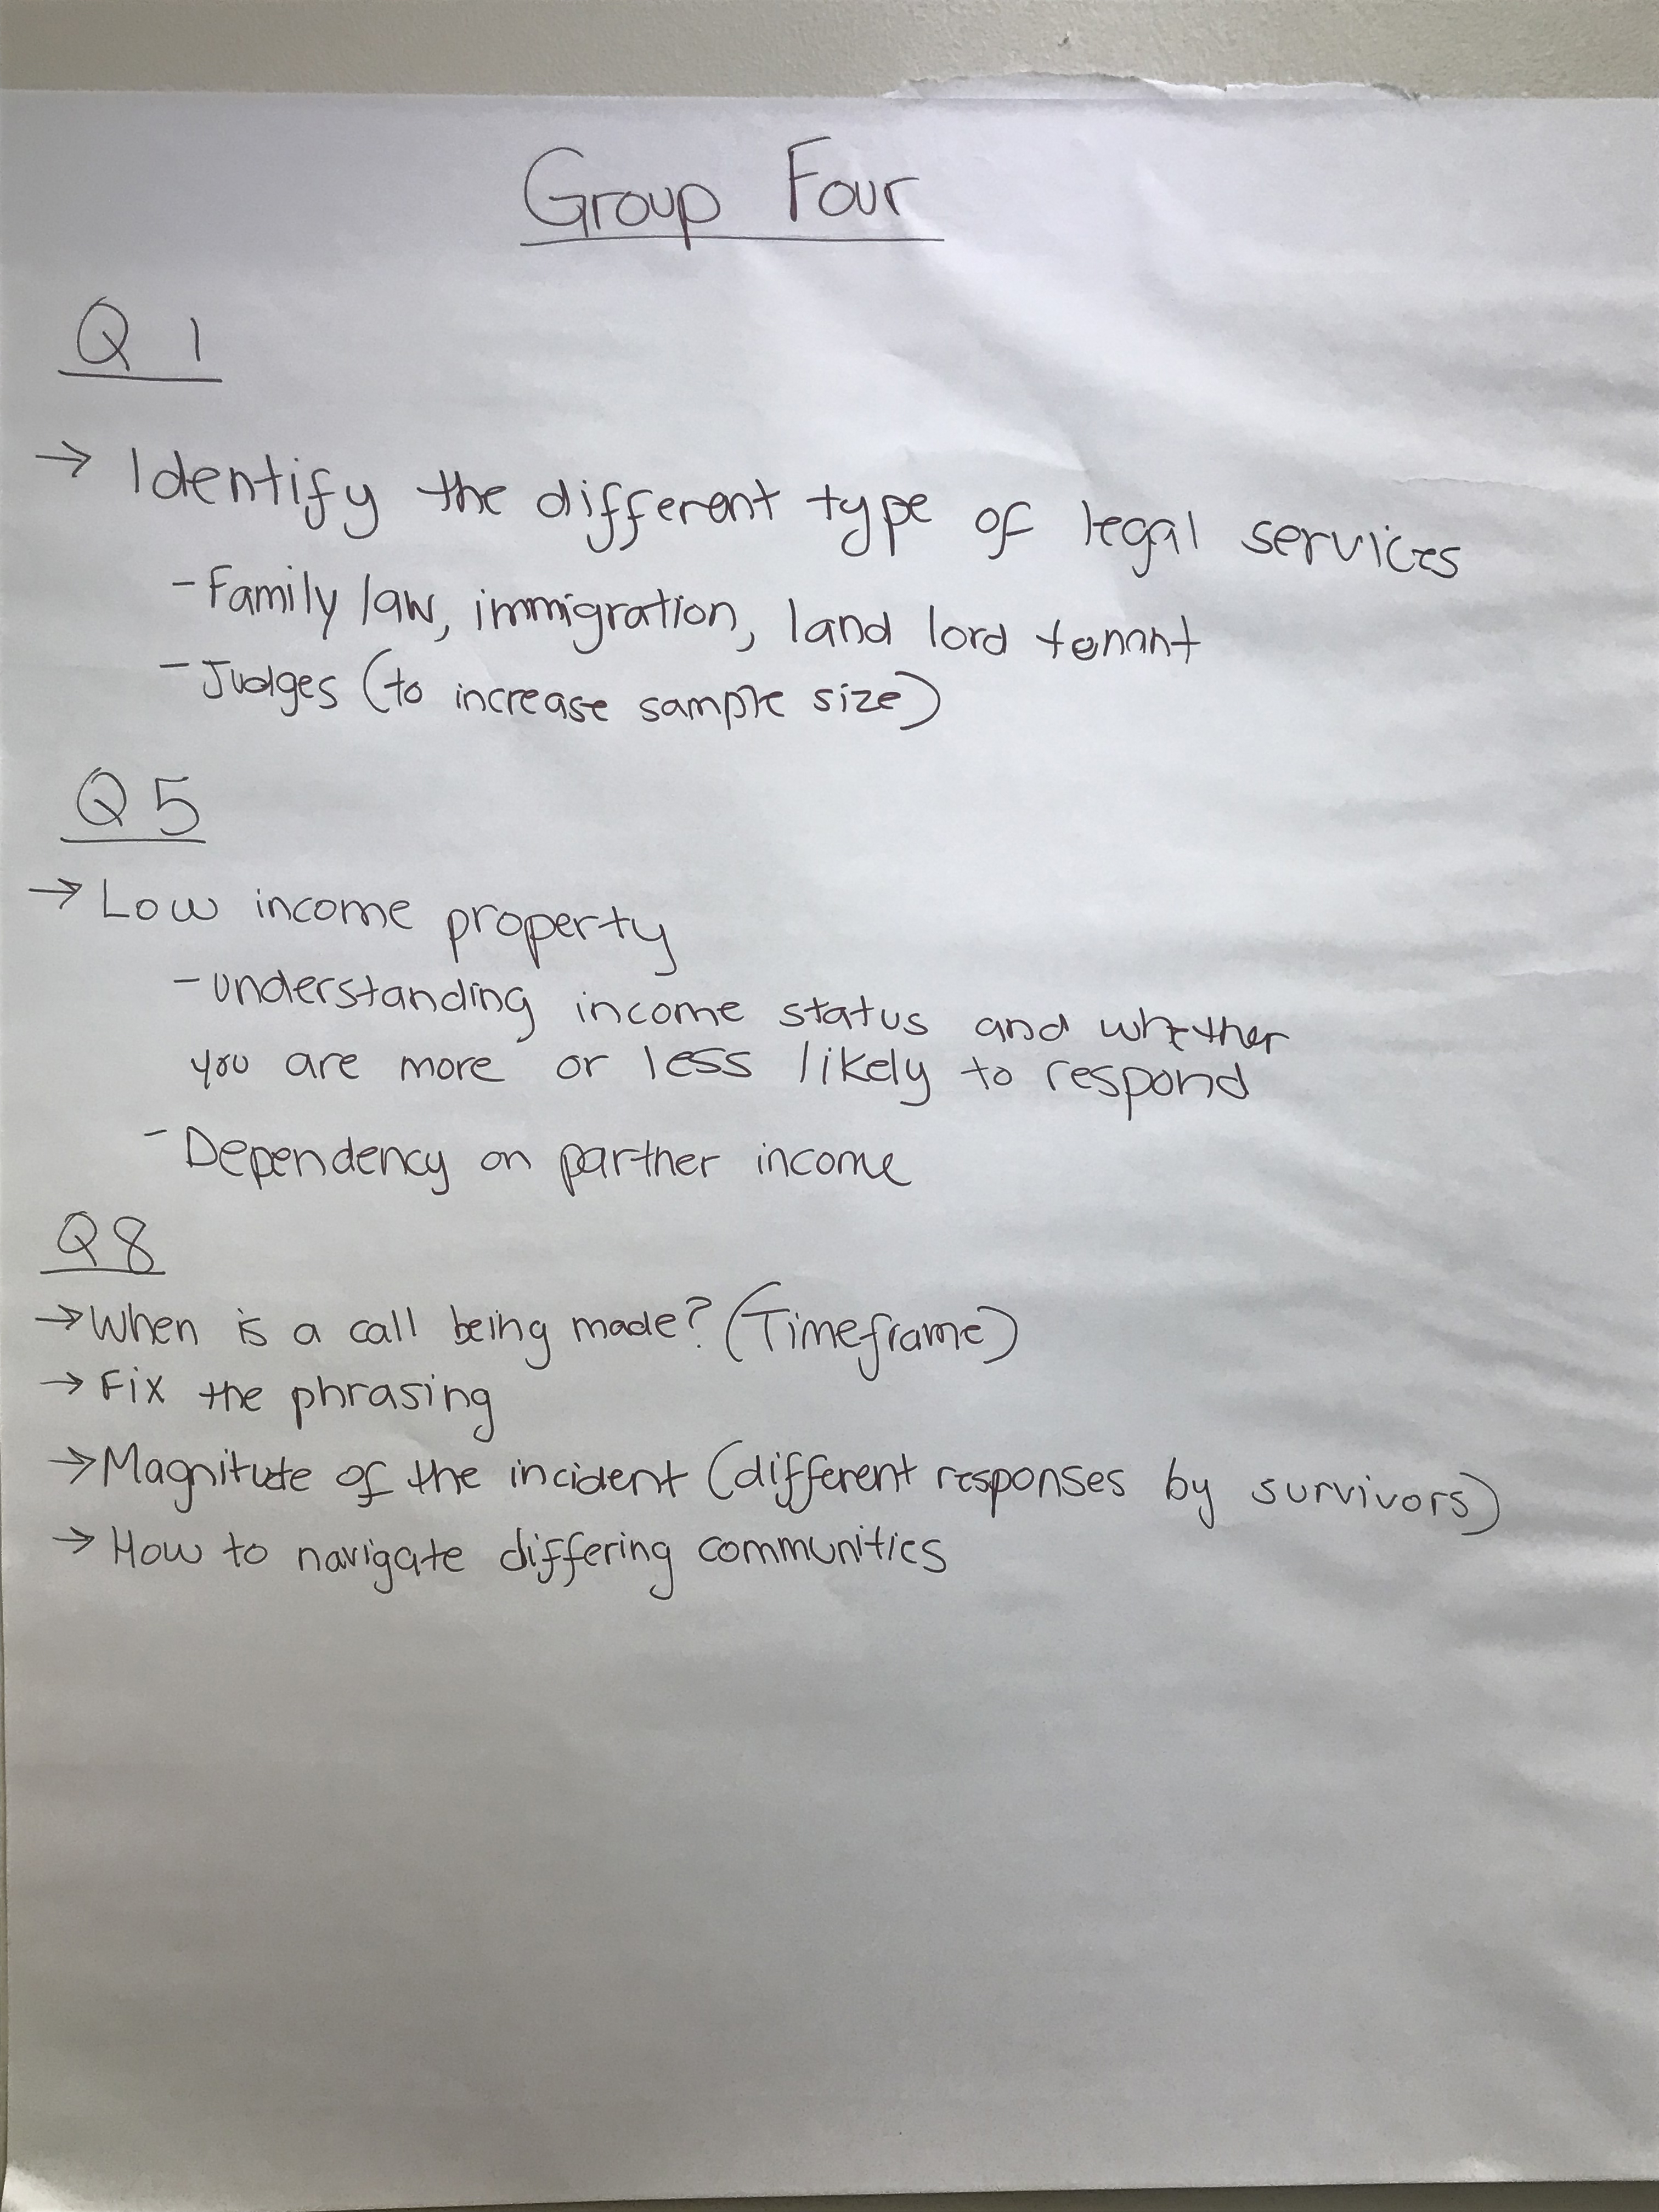 Group Four
Q 1
→ Identify the different type of legal services
- Family law, immigration, land lord tenant
- Judges (to increase sample size)
Q5
→ Low income property
- understanding income status and whether
you are more or less likely to respond
- Dependency on partner income
Q8
→ When is a call being made? (Timeframe)
→ Fix the phrasing
→ Magnitute of the incident (different responses by survivors)
→ How to navigate differing communities